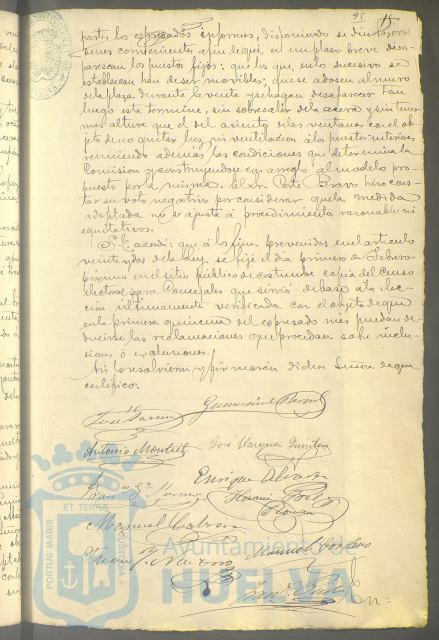 95
parte los expresados informes, disponiendo se dicten las or-
denes convenientes a fin de que, en un plazo breve desa-
parezcan los puestos fijos: que los que, en lo sucesivo se
establezcan han de ser movibles; que se adosen al muro
de la plaza durante la venta y se hagan desaparecer tan
luego esta termine, sin sobresalir de la acera y sin tener
mas altura que el del asiento de las ventanas con el ob-
jeto de no quitar luz, ni ventilacion á los puestos interiores
reuniendo además las condiciones que determine la
Comision y construyendose con arreglo al modelo pro-
puesto por la misma. El Sr. Bravo hizo cons-
tar su voto negativo por considerar que la medida
adoptada no se ajusta á procedimientos razonables ni
equitativos.
Se acordó: que á los fines prevenidos en el artículo
veinte y dos de la ley, se fije el dia primero de Febrero
próximo en el sitio público de costumbre copia del censo
electoral para Concejales que sirvió de base á la elec-
cion últimamente verificada con el objeto de que
en la primera quincena del expresado mes puedan de-
ducirse las reclamaciones que procedan sobre inclu-
siones ó exclusiones.
Asi lo resolvieron y firmarán dichos Señores de que
certifico:
José García
Antonio Montiel José Marquez
Enrique Alvarez
Horacio Bel
Roman
Manuel
Juan J. Navarro Manuel
PORTUS MARIS ET TERRÆ CUSTODIA
Ayuntamiento de
HUELVA